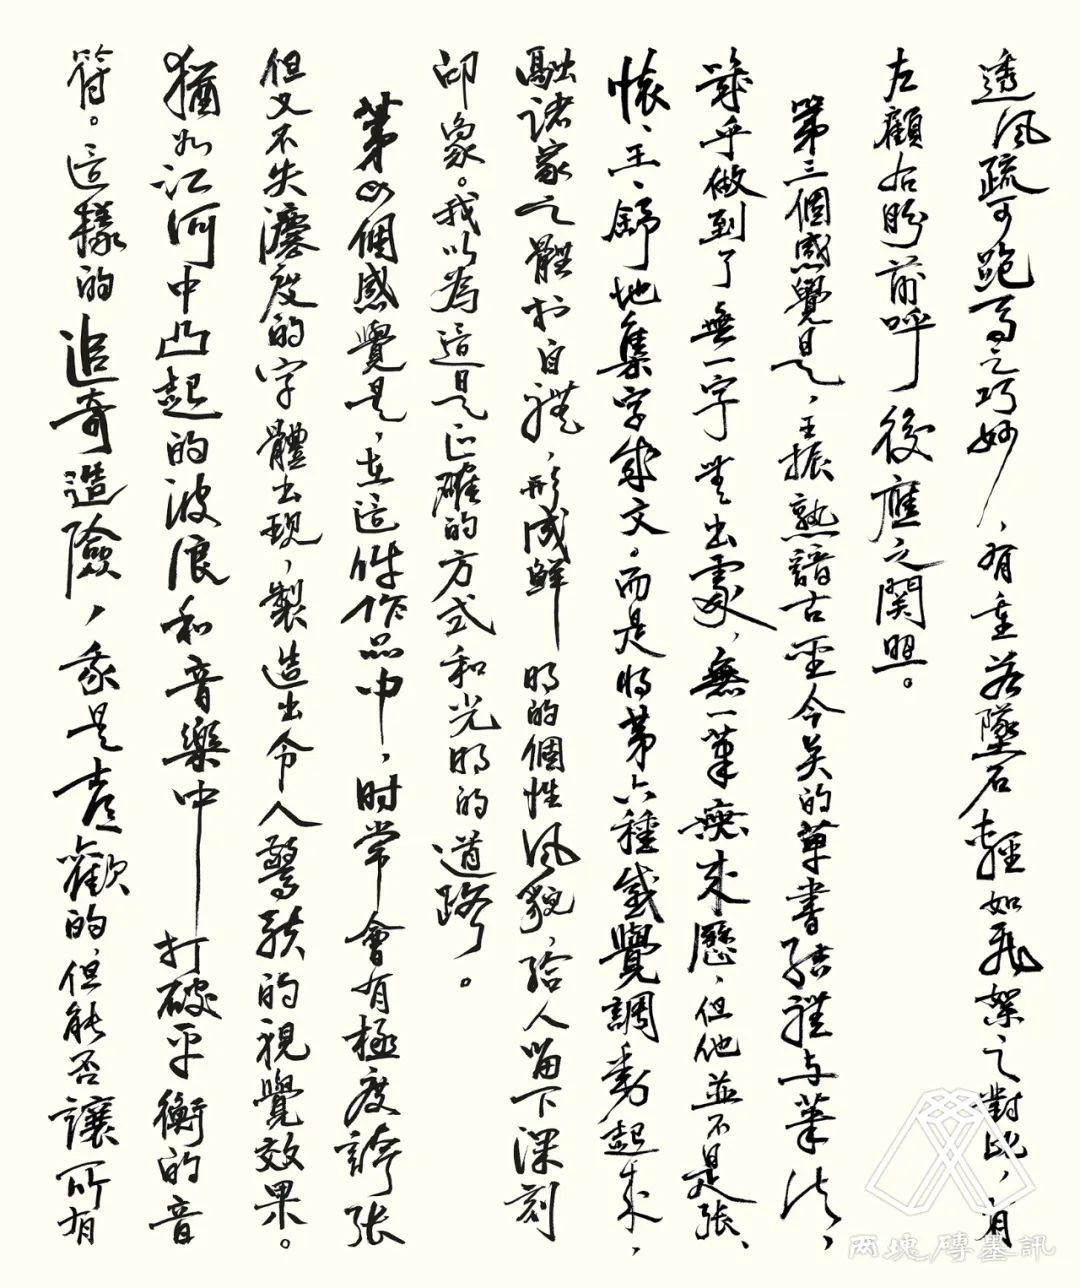 透風疏可跑馬之巧妙，有重若墜石輕如飛絮之對比，有
左顧右盼前呼後應之関照。
第三個感覺是，王振熟諳古聖今賢的草書結體与筆法，
幾乎做到了無一字無出處，無一筆無來歷，但他並不是張、
懷、王、舒地集字成文。而是將第六種感覺調動起來，
融諸家之體於自體，形成鮮明的個性風貌，給人留下深刻
印象。我以為這是正確的方式和光明的道路。
第四個感覺是，在這件作品中，时常會有極度誇張
但又不失法度的字體出現，製造出令人驚駭的視覺效果。
猶如江河中凸起的波浪和音樂中打破平衡的音
符。這樣的追奇造險，我是喜歡的，但能否讓所有
两塊磚墨訊